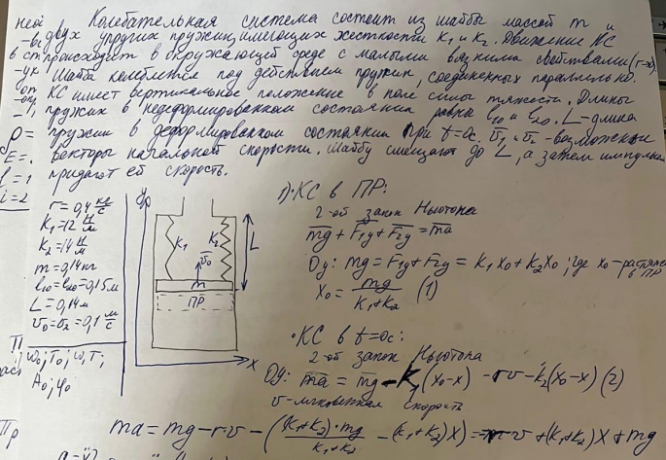 ней Колебательная система состоит из шайбы массой m и
-вы двух упругих пружин, имеющих жесткости K₁ и K₂. Движение КС
в ст происходит в окружающей среде с малыми вязкими свойствами (r-
-ук Шайба колеблется под действием пружин, соединенных параллельно.
от КС имеет вертикальное положение в поле силы тяжести. Длины
пружин в недеформированном состоянии равна l₁₀ и l₂₀. L-длина
ρ = пружин в деформированном состоянии при t=0с. v₁, v₂ - возможные
E = векторы начальной скорости. Шайбу смещают до L, а затем импульсом
l = 1 придают ей скорость.
i = 2
r=0,4 кг/с
K₁=12 Н/м
K₂=14 Н/м
m=0,14кг
l₁₀=l₂₀=0,15м
L=0,14м
v₀=v₂=0,1 м/с
ω₀; T₀; ω, T;
A₀; φ₀
y
K₁
K₂
L
v₀
m
ПР
x
1) КС в ПР:
2-ой закон Ньютона
mg+F₁y+F₂y=ma
Оу: mg=F₁y+F₂y=K₁x₀+K₂x₀; где x₀-растяж
в ПР
x₀= mg/(K₁+K₂) (1)
·КС в t=0с:
2-ой закон Ньютона
Оу: ma = mg - K₁(x₀-x) -rv-k₂(x₀-x) (2)
v-мгновенная скорость
Пр ma = mg-r·v - ((K₁+K₂)·mg/(K₁+K₂) - (K₁+K₂)x) = -rv+(K₁+K₂)x+mg